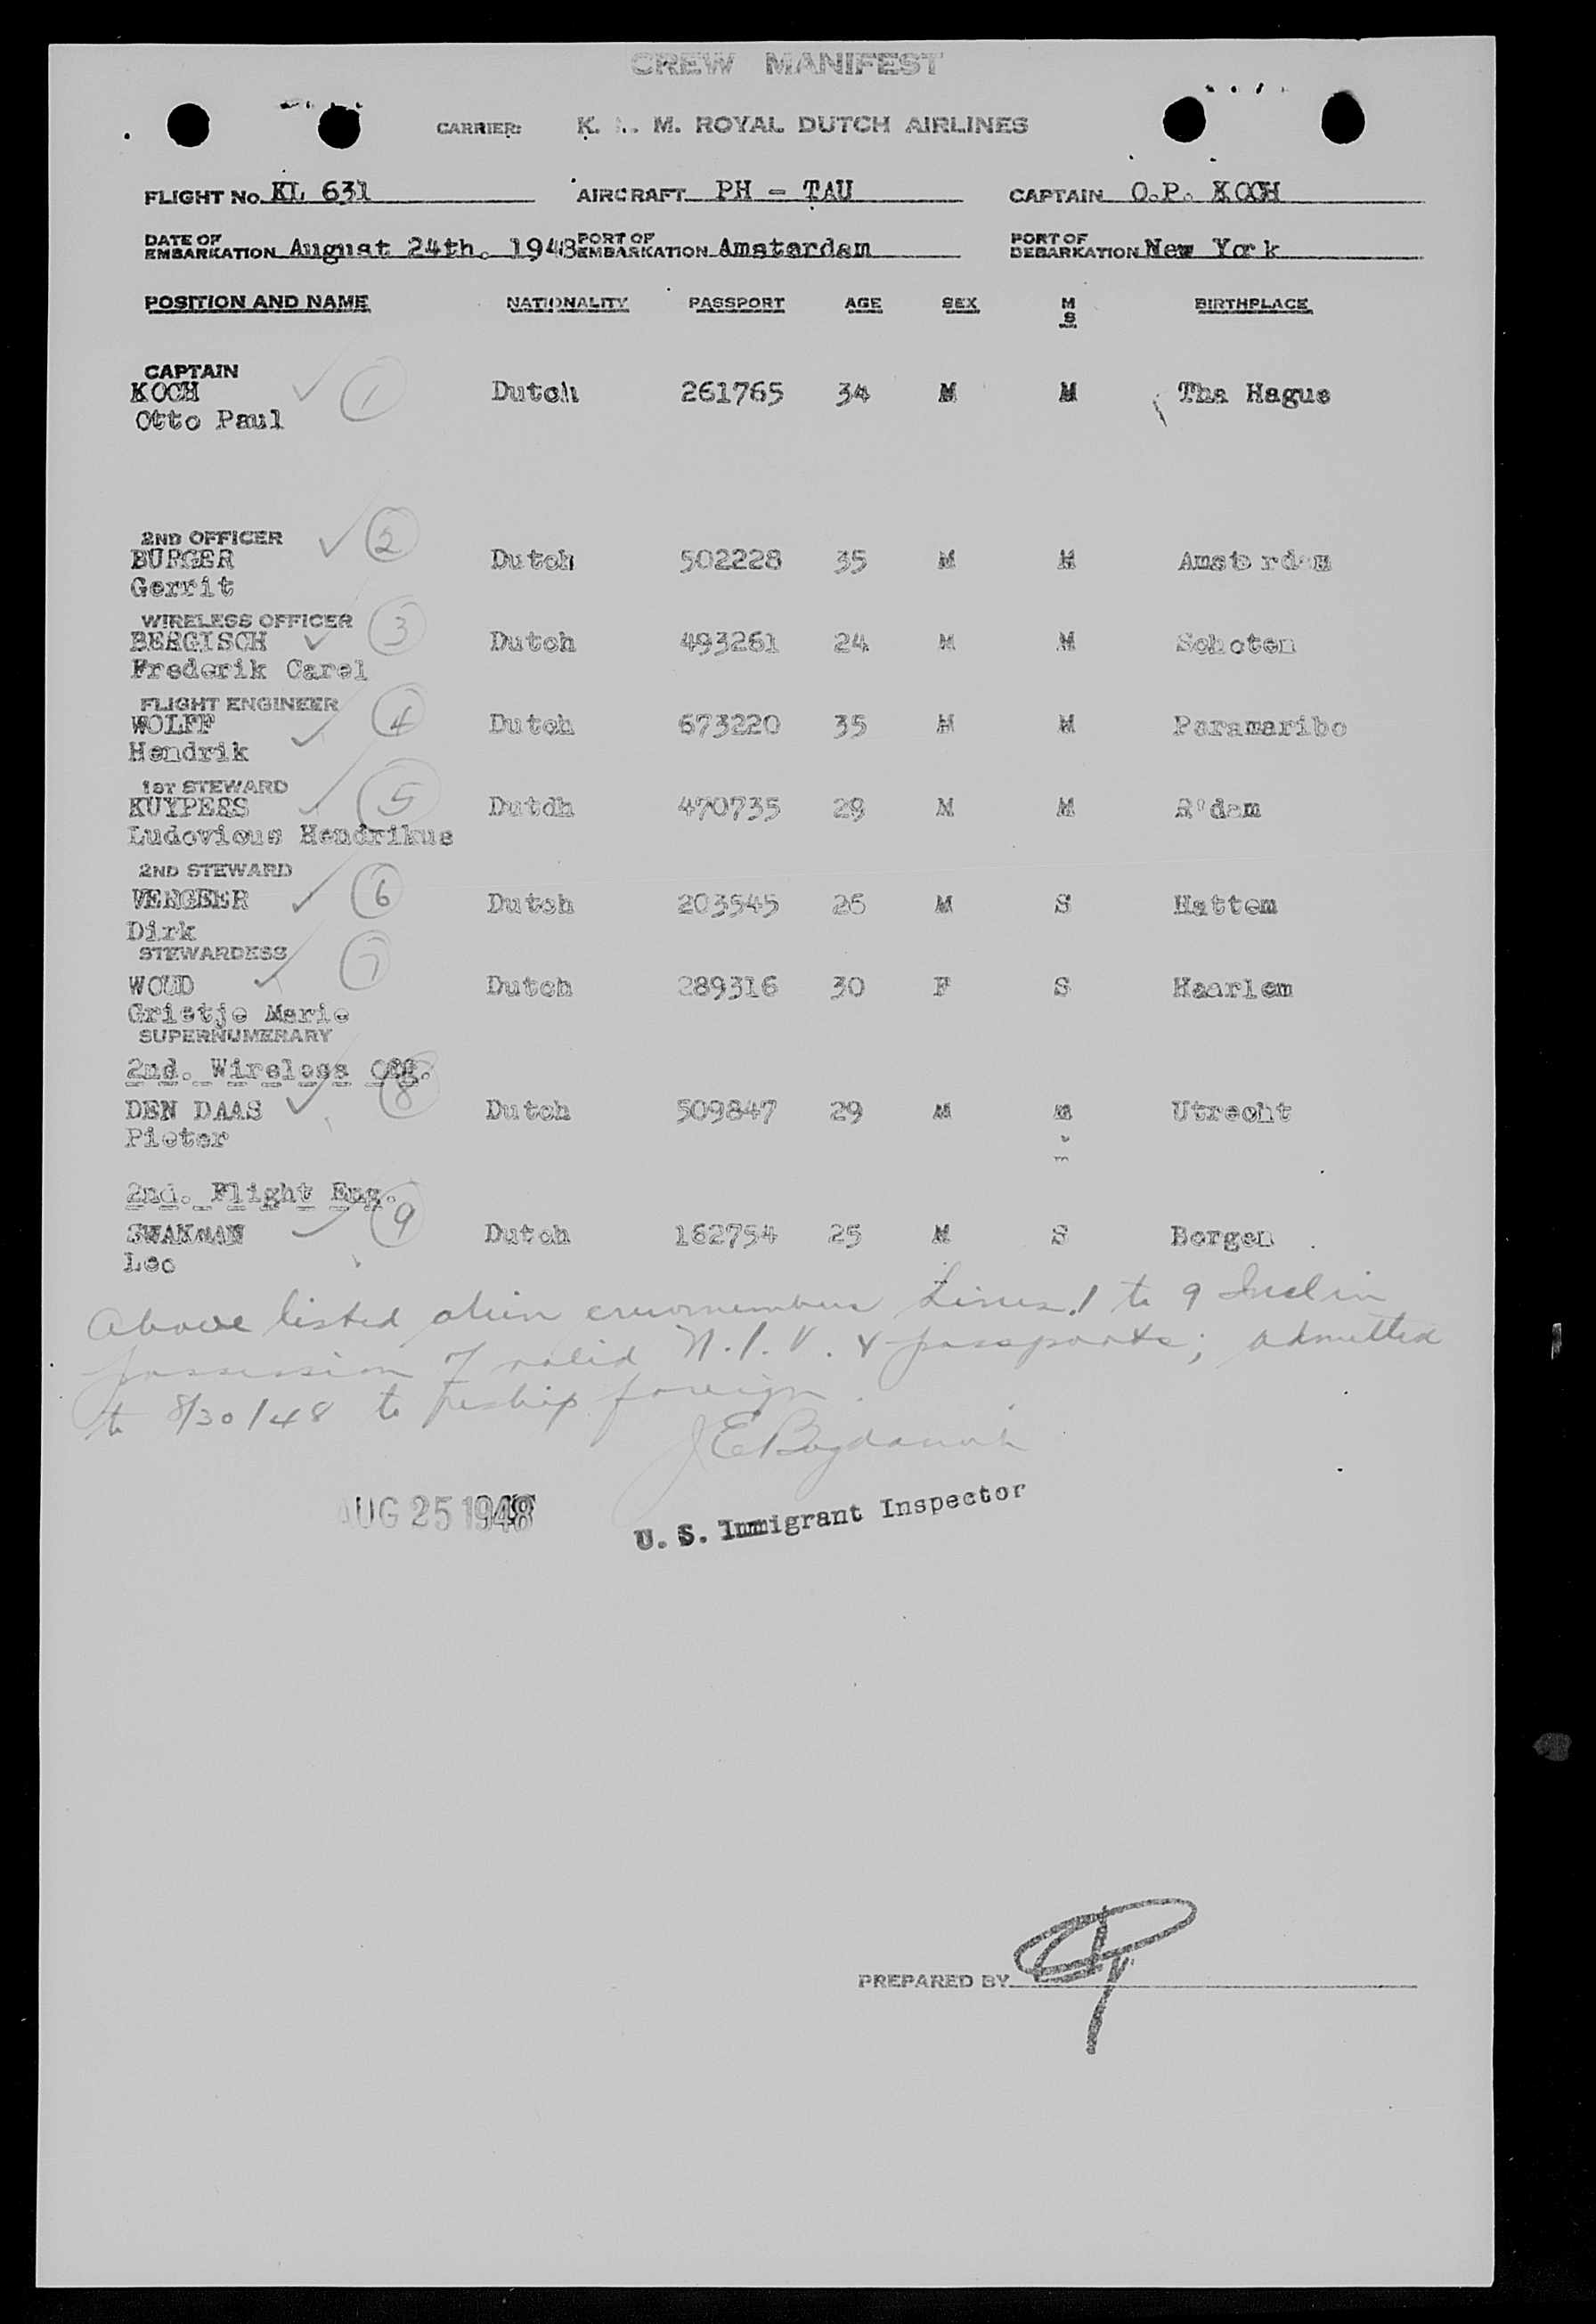 CREW MANIFEST
CARRIER: K. L. M. ROYAL DUTCH AIRLINES
FLIGHT No. KL 631 AIRCRAFT PH - TAU CAPTAIN O.P. KOCH
DATE OF EMBARKATION August 24th. 1948 PORT OF EMBARKATION Amsterdam PORT OF DEBARKATION New York
POSITION AND NAME NATIONALITY PASSPORT AGE SEX M S BIRTHPLACE
CAPTAIN
KOCH 1 Dutch 261765 34 M M The Hague
Otto Paul
2ND OFFICER
BURGER 2 Dutch 502228 35 M M Amsterdam
Gerrit
WIRELESS OFFICER
BERGISCH 3 Dutch 493261 24 M M Schoten
Frederik Carel
FLIGHT ENGINEER
WOLFF 4 Dutch 673220 35 M M Paramaribo
Hendrik
1ST STEWARD
KUYPERS 5 Dutch 470735 28 M M R'dam
Ludovicus Hendrikus
2ND STEWARD
VERGEER 6 Dutch 203545 26 M S Hattem
Dirk
STEWARDESS 7
WOUD Dutch 289316 30 F S Haarlem
Grietje Marie
SUPERNUMERARY
2nd. Wireless Off. 8
DEN DAAS Dutch 509847 29 M m Utrecht
Pieter
2nd. Flight Eng. 9
SWAKMAN Dutch 162754 25 M S Bergen
Leo
Above listed alien crewmembers Lines 1 to 9 Incl in
possession of valid N.I.V. & passports; admitted
to 8/30/48 to reship foreign.
J E Bogdanovich
AUG 25 1948
U. S. Immigrant Inspector
PREPARED BY